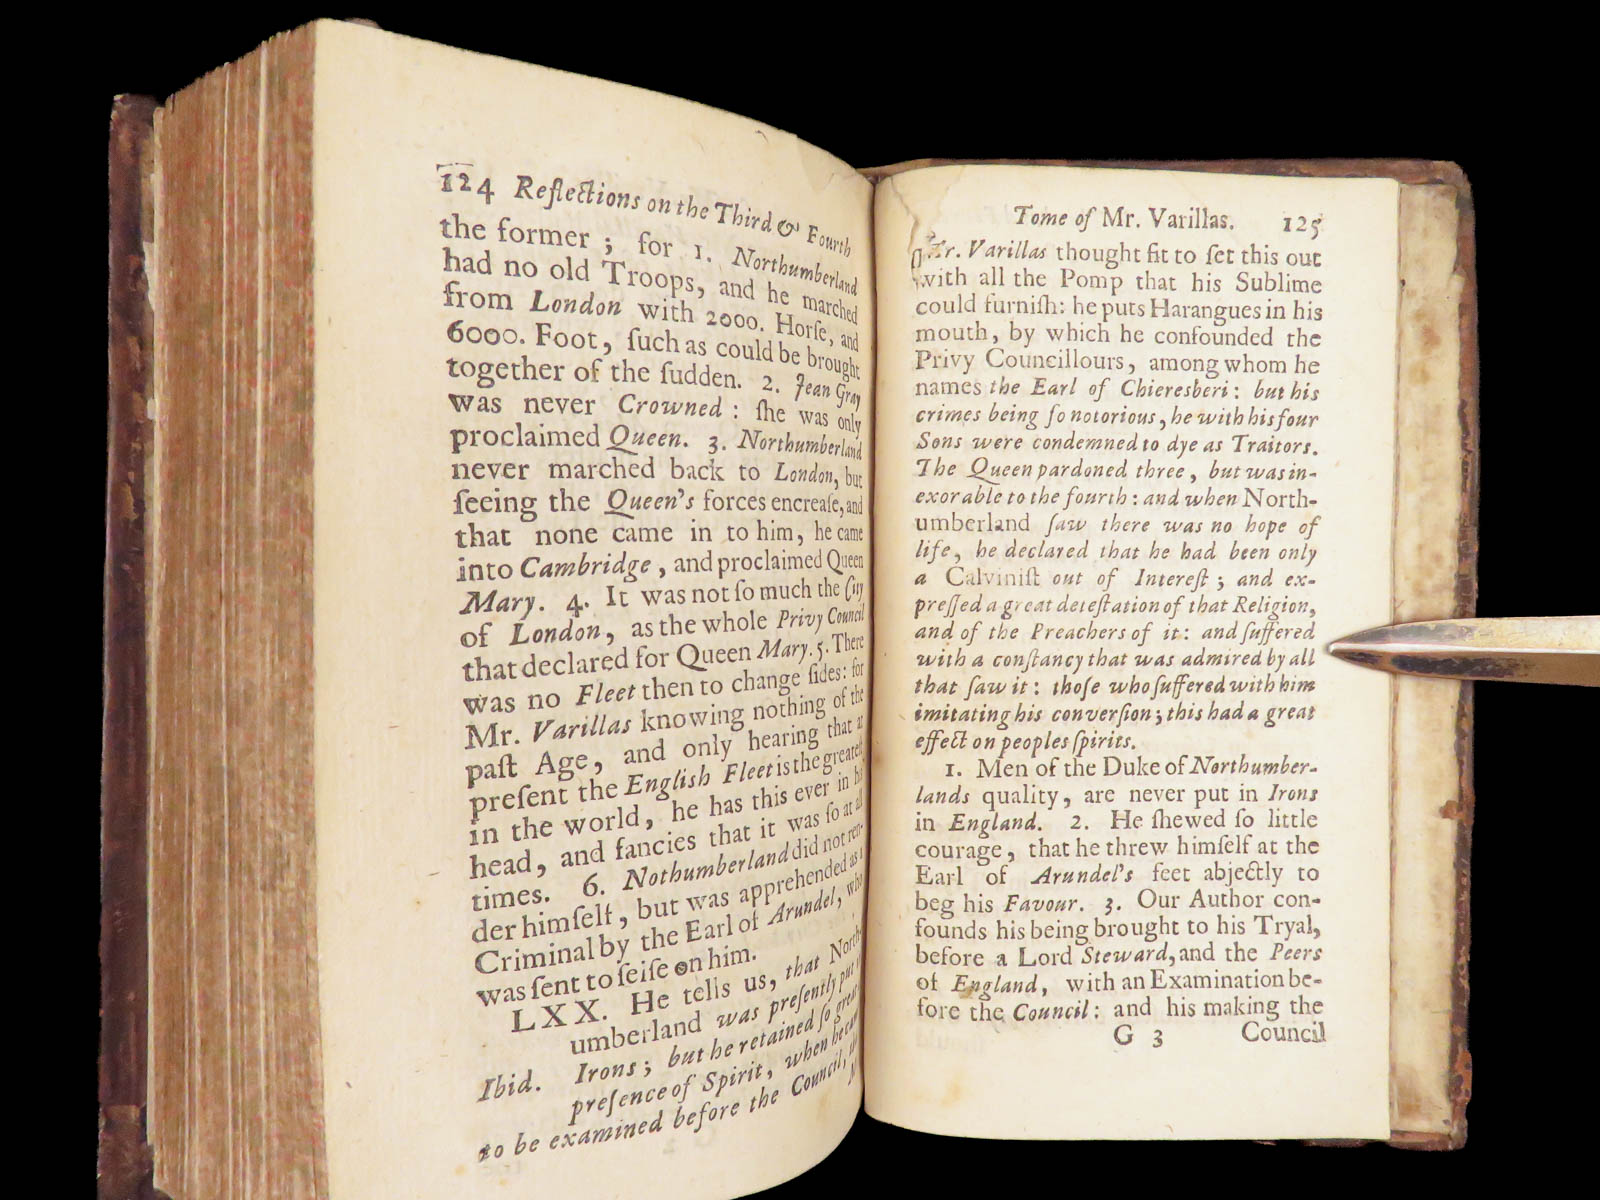 124 Reflections on the Third & Fourth
the former ; for 1. Northumberland
had no old Troops, and he marched
from London with 2000. Horſe, and
6000. Foot, ſuch as could be brought
together of the ſudden. 2. Jean Gray
was never Crowned : ſhe was only
proclaimed Queen. 3. Northumberland
never marched back to London, but
ſeeing the Queen's forces encreaſe, and
that none came in to him, he came
into Cambridge , and proclaimed Queen
Mary. 4. It was not ſo much the City
of London, as the whole Privy Council
that declared for Queen Mary. 5. There
was no Fleet then to change ſides: for
Mr. Varillas knowing nothing of the
paſt Age, and only hearing that at
preſent the Engliſh Fleet is the greateſt
in the world, he has this ever in his
head, and fancies that it was ſo at all
times. 6. Nothumberland did not ren-
der himſelf, but was apprehended as a
Criminal by the Earl of Arundel, who
was ſent to ſeiſe on him.
LXX. He tells us, that North-
umberland was preſently put in
Ibid. Irons ; but he retained ſo great
preſence of Spirit, when he came
to be examined before the Council,
Tome of Mr. Varillas. 125
Mr. Varillas thought fit to ſet this out
with all the Pomp that his Sublime
could furniſh: he puts Harangues in his
mouth, by which he confounded the
Privy Councillours, among whom he
names the Earl of Chieresberi: but his
crimes being ſo notorious, he with his four
Sons were condemned to dye as Traitors.
The Queen pardoned three, but was in-
exorable to the fourth: and when North-
umberland ſaw there was no hope of
life, he declared that he had been only
a Calviniſt out of Intereſt; and ex-
preſſed a great deteſtation of that Religion,
and of the Preachers of it: and ſuffered
with a conſtancy that was admired by all
that ſaw it: thoſe who ſuffered with him
imitating his converſion; this had a great
effect on peoples ſpirits.
1. Men of the Duke of Northumber-
lands quality, are never put in Irons
in England. 2. He ſhewed ſo little
courage, that he threw himſelf at the
Earl of Arundel's feet abjectly to
beg his Favour. 3. Our Author con-
founds his being brought to his Tryal,
before a Lord Steward, and the Peers
of England, with an Examination be-
fore the Council: and his making the
G 3 Council